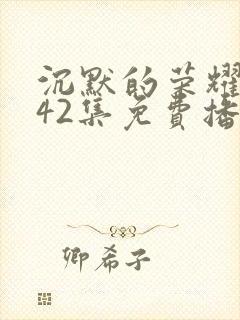 沉默的荣耀
42集免費播
卿希子